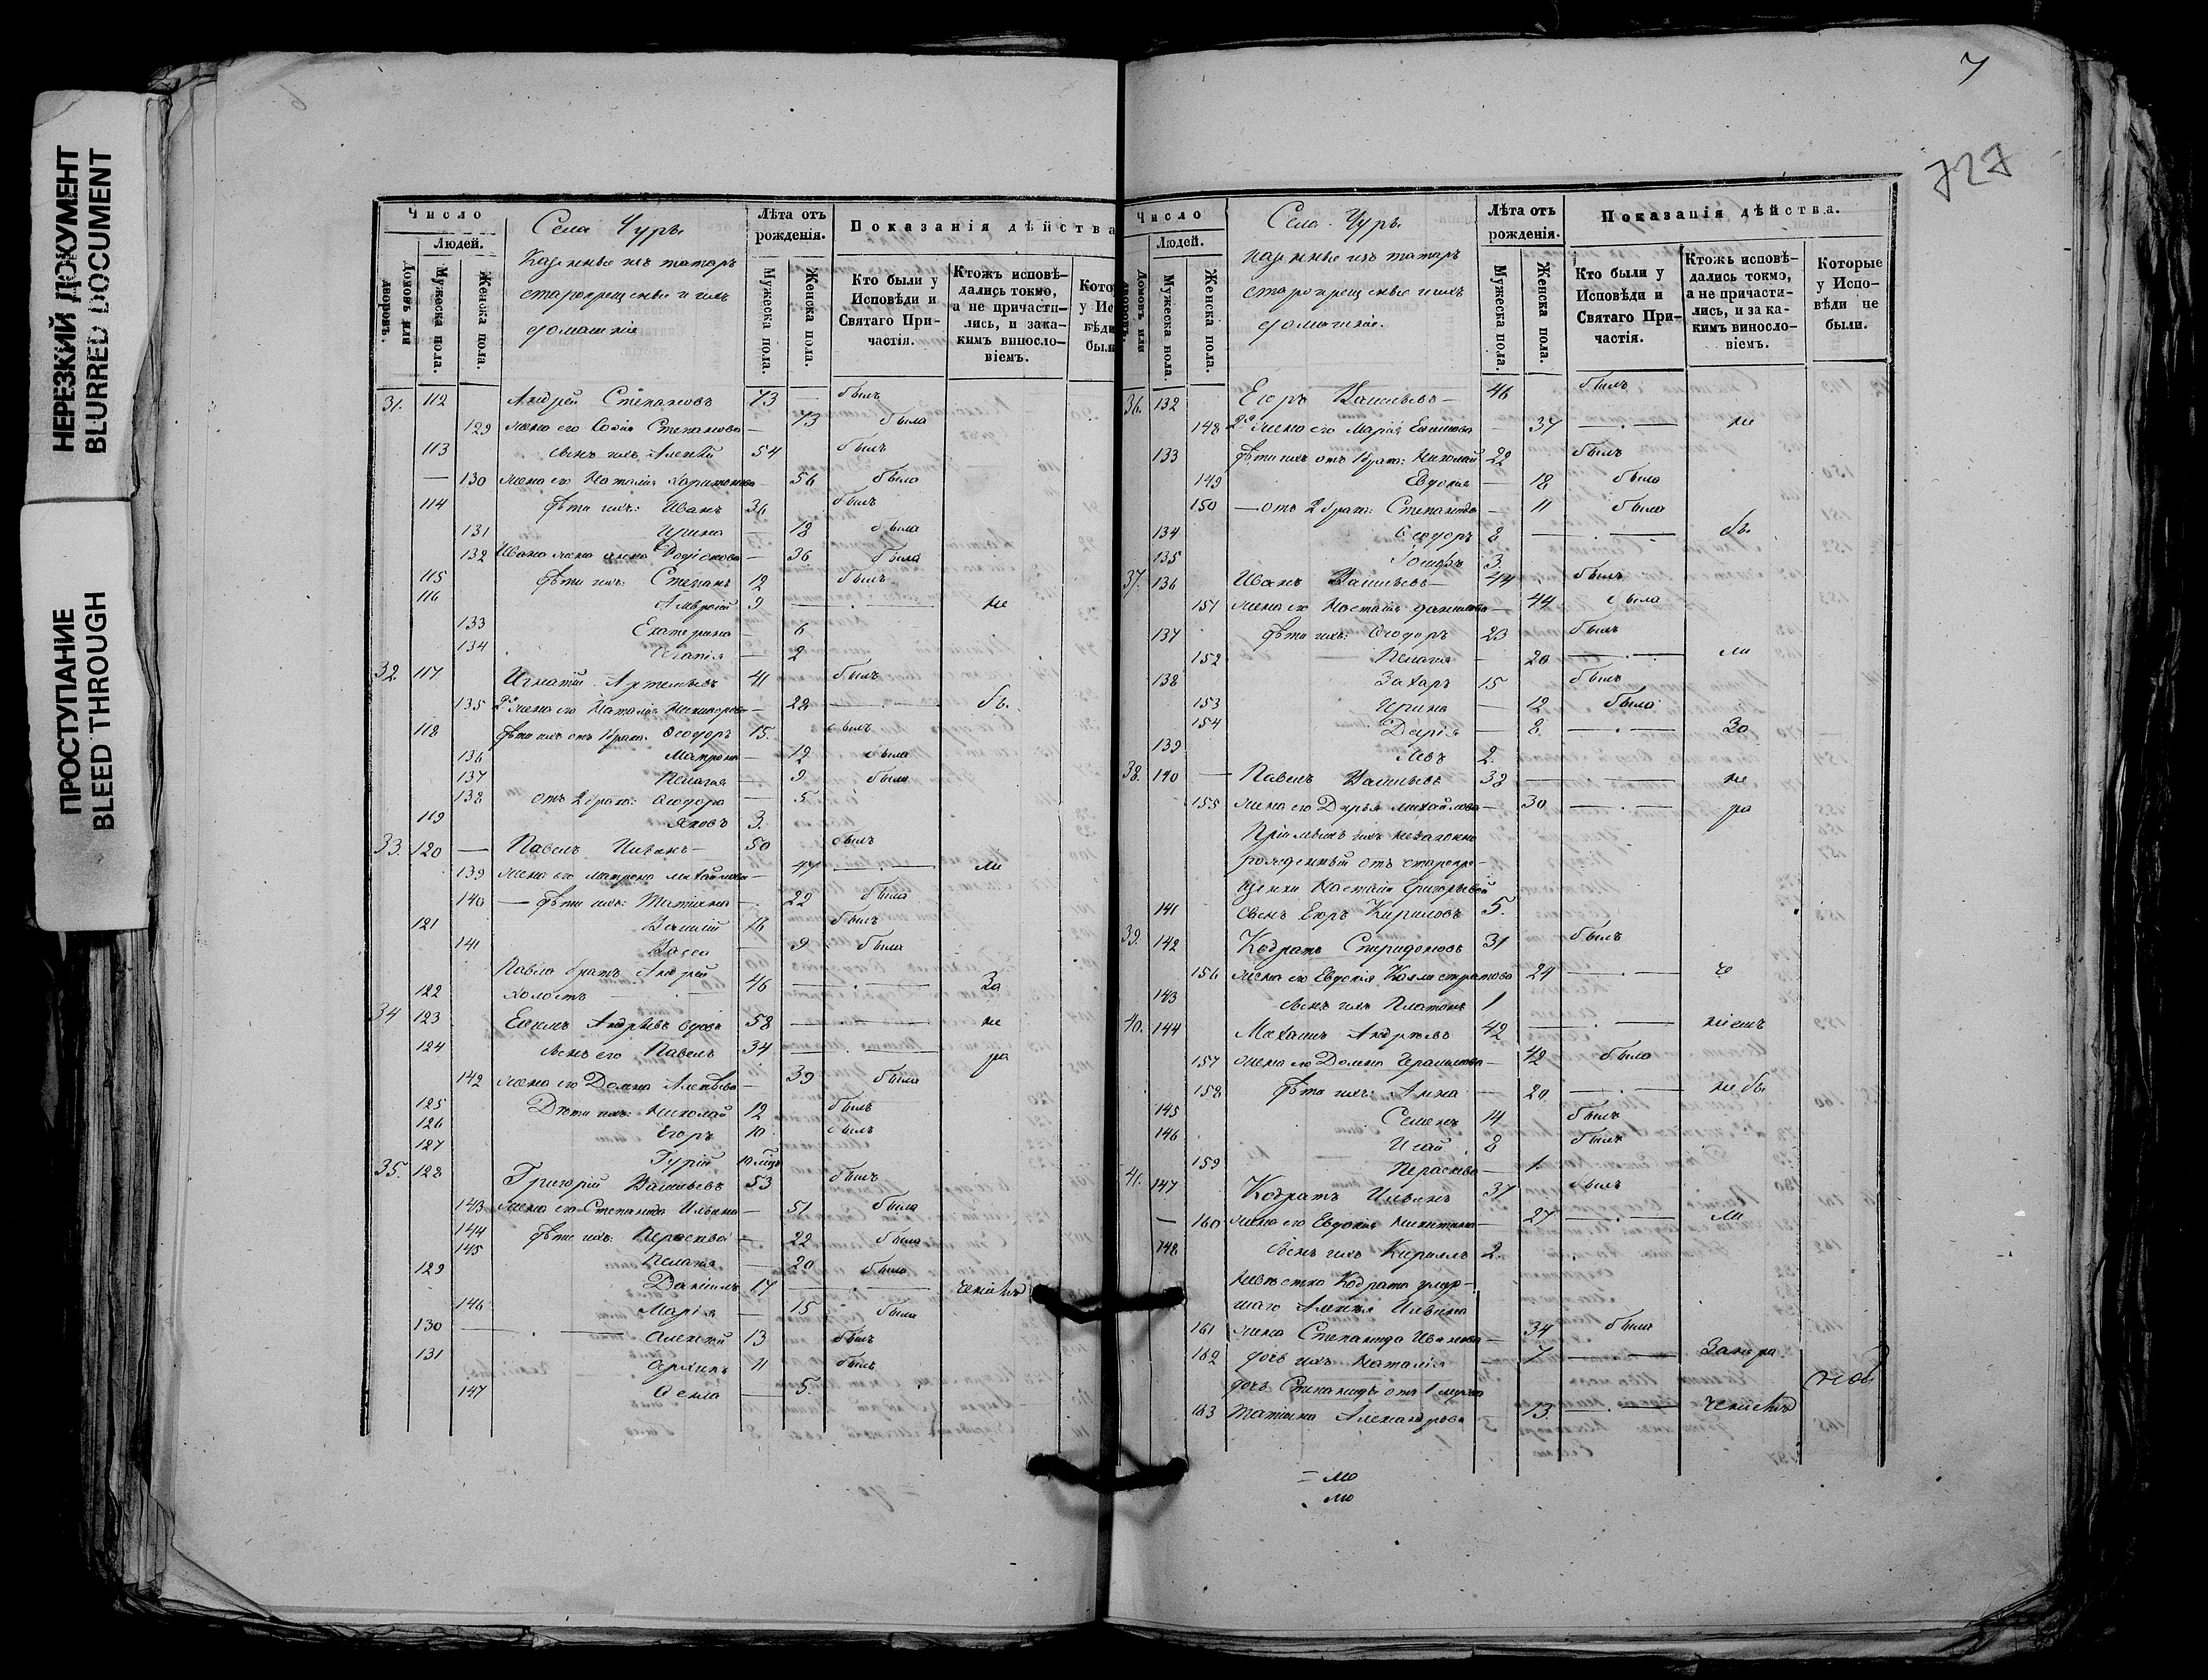 НЕРЕЗКИЙ ДОКУМЕНТ
BLURRED DOCUMENT
ПРОСТУПАНИЕ
BLEED THROUGH
Число
Людей.
Домовъ или дворовъ.
Мужеска пола.
Женска пола.
Села Чуръ.
Казенные изъ татаръ
старокрещеные и ихъ
домашніе
Лѣта отъ рожденія.
Мужеска пола.
Женска пола.
Показанія дѣйства
Кто были у Исповѣди и Святаго Причастія.
Ктожъ исповѣдались токмо, а не причастились, и за какимъ винословіемъ.
31. 112 Андрей Степановъ 73 — былъ
129 жена его Софія Степанова — 73 была
113 сынъ ихъ Алексѣй 54 былъ
— 130 жена его Наталія Харитонова — 56 была
114 дѣти ихъ: Иванъ 36 былъ
131 Ирина — 18 была
132 Ивана жена Родіонова — 36 была
115 дѣти ихъ: Степанъ 12 былъ
116 9 — . — не
133 Екатерина — 6
134 — 2
32 117 Игнатій Артемьевъ 41 былъ
135 2я жена его Наталія Никифорова — 28 — . — бы
118 дѣти ихъ отъ 1 брака: Ѳеодоръ 15. былъ
136 Матрона — 12 была
137 Пелагія — 9 была
138 отъ 2 брака: Ѳеодора — 5
119 Яковъ 3.
33. 120 — Павелъ Ильинъ — 50 былъ
139 жена его Матрона Михайлова — 47 — . — ли
140 — дѣти ихъ: Татіана — . 22 была
121 Василій 16 былъ
141 Васса — 9 была
Павла братъ Андрей
122 холостъ 46 — . — За
34 123 Ефимъ Андрѣевъ вдовъ 58 — . — не
124 сынъ его Павелъ 34 — . — ра
142 жена его Домна Алексѣева — 39 была
125 Дѣти ихъ: Николай 12 былъ
126 Егоръ 10 былъ
127 Гурій
35. 128 Григорій Васильевъ 53 былъ
143 жена его Степанида Ильина — 51 была
144 дѣти ихъ: Параскева — 22 была
145 Пелагія — 20 была
129 Даніилъ 17 — . —
146 Марія — 15 была
130 — . — Алексѣй 13 былъ
131 Архипъ 11 былъ
147 Ѳекла — 5.
7
727
Число
Людей.
Домовъ или дворовъ.
Мужеска пола.
Женска пола.
Села Чуръ.
Казенные изъ татаръ
старокрещеные и ихъ
домашніе.
Лѣта отъ рожденія.
Мужеска пола.
Женска пола.
Показанія дѣйства.
Кто были у Исповѣди и Святаго Причастія.
Ктожъ исповѣдались токмо, а не причастились, и за какимъ винословіемъ.
Которые у Исповѣди не были.
36. 132 Егоръ Васильевъ — 46 былъ
148 2я жена его Марія Ефимова — 37 — . — не
133 дѣти ихъ отъ 1 брака: Николай 22 былъ
149 Евдокія — 18 была
150 — отъ 2 брака: Степанида — 11 была
134 Ѳеодоръ 8 — . — бы
135 Іосифъ 3.
37. 136 Иванъ Васильевъ — 44 былъ
151 жена его Настасія Данилова — 44 была
137 дѣти ихъ: Ѳеодоръ 23 былъ
152 Пелагія — 20 — . — ли
138 Захаръ 15 былъ
153 Ирина — 12 была
154 Дарія — 8. — . — За
139 Левъ 2.
38. 140 — Павелъ Васильевъ 38 — . — не
155 жена его Дарья Михайлова — 30 — . — ра
Пріемышъ ихъ незаконно
рожденный отъ старокре-
щенки Настасіи Григорьевой
141 сынъ Егоръ Кириловъ 5.
39. 142 Кодратъ Спиридоновъ 31 былъ
156 жена его Евдокія Каллистратова 24 — . — че
143 сынъ ихъ Платонъ 1
40. 144 Михаилъ Андрѣевъ 42 — . — ніемъ
157 жена его Домна Герасимова — 42 была
158 дѣти ихъ: Анна — 20 — . — не бы
145 Семенъ 14 былъ
146 8 былъ
159 Параскева — 1.
41. 147 Кодратъ Ильинъ 37 былъ
— 160 жена его Евдокія Никитина — 27 — . — ли
148 сынъ ихъ Кириллъ 2.
Невѣстка Кодрата умер-
шаго Алексѣя Ильина
161 жена Степанида Иванова — 34 была
162 дочь ихъ Наталія — 7 — . — За нера
дочь Степаниды отъ 1 мужа
163 Татіана Александрова 13. — . —